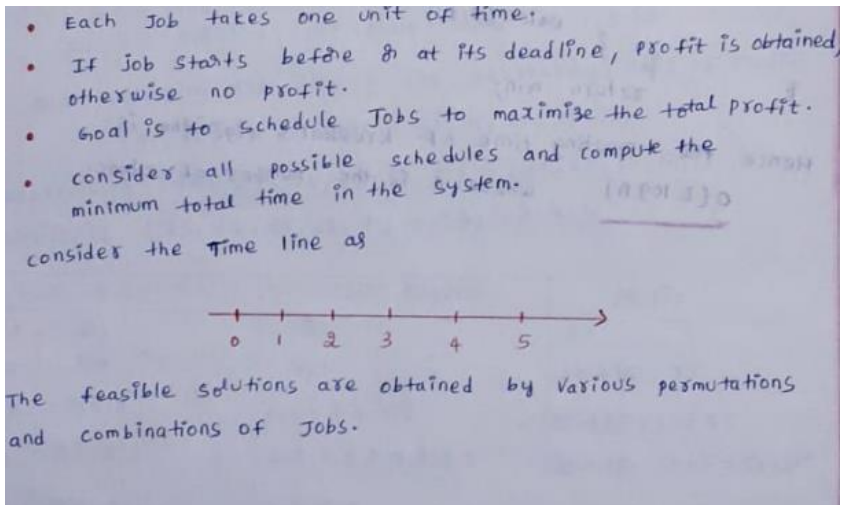 • Each Job takes one unit of time.
• If job starts before or at its deadline, profit is obtained,
otherwise no profit.
• Goal is to schedule Jobs to maximize the total profit.
• consider all possible schedules and compute the
minimum total time in the system.
consider the Time line as
0 1 2 3 4 5
The feasible solutions are obtained by various permutations
and combinations of Jobs.